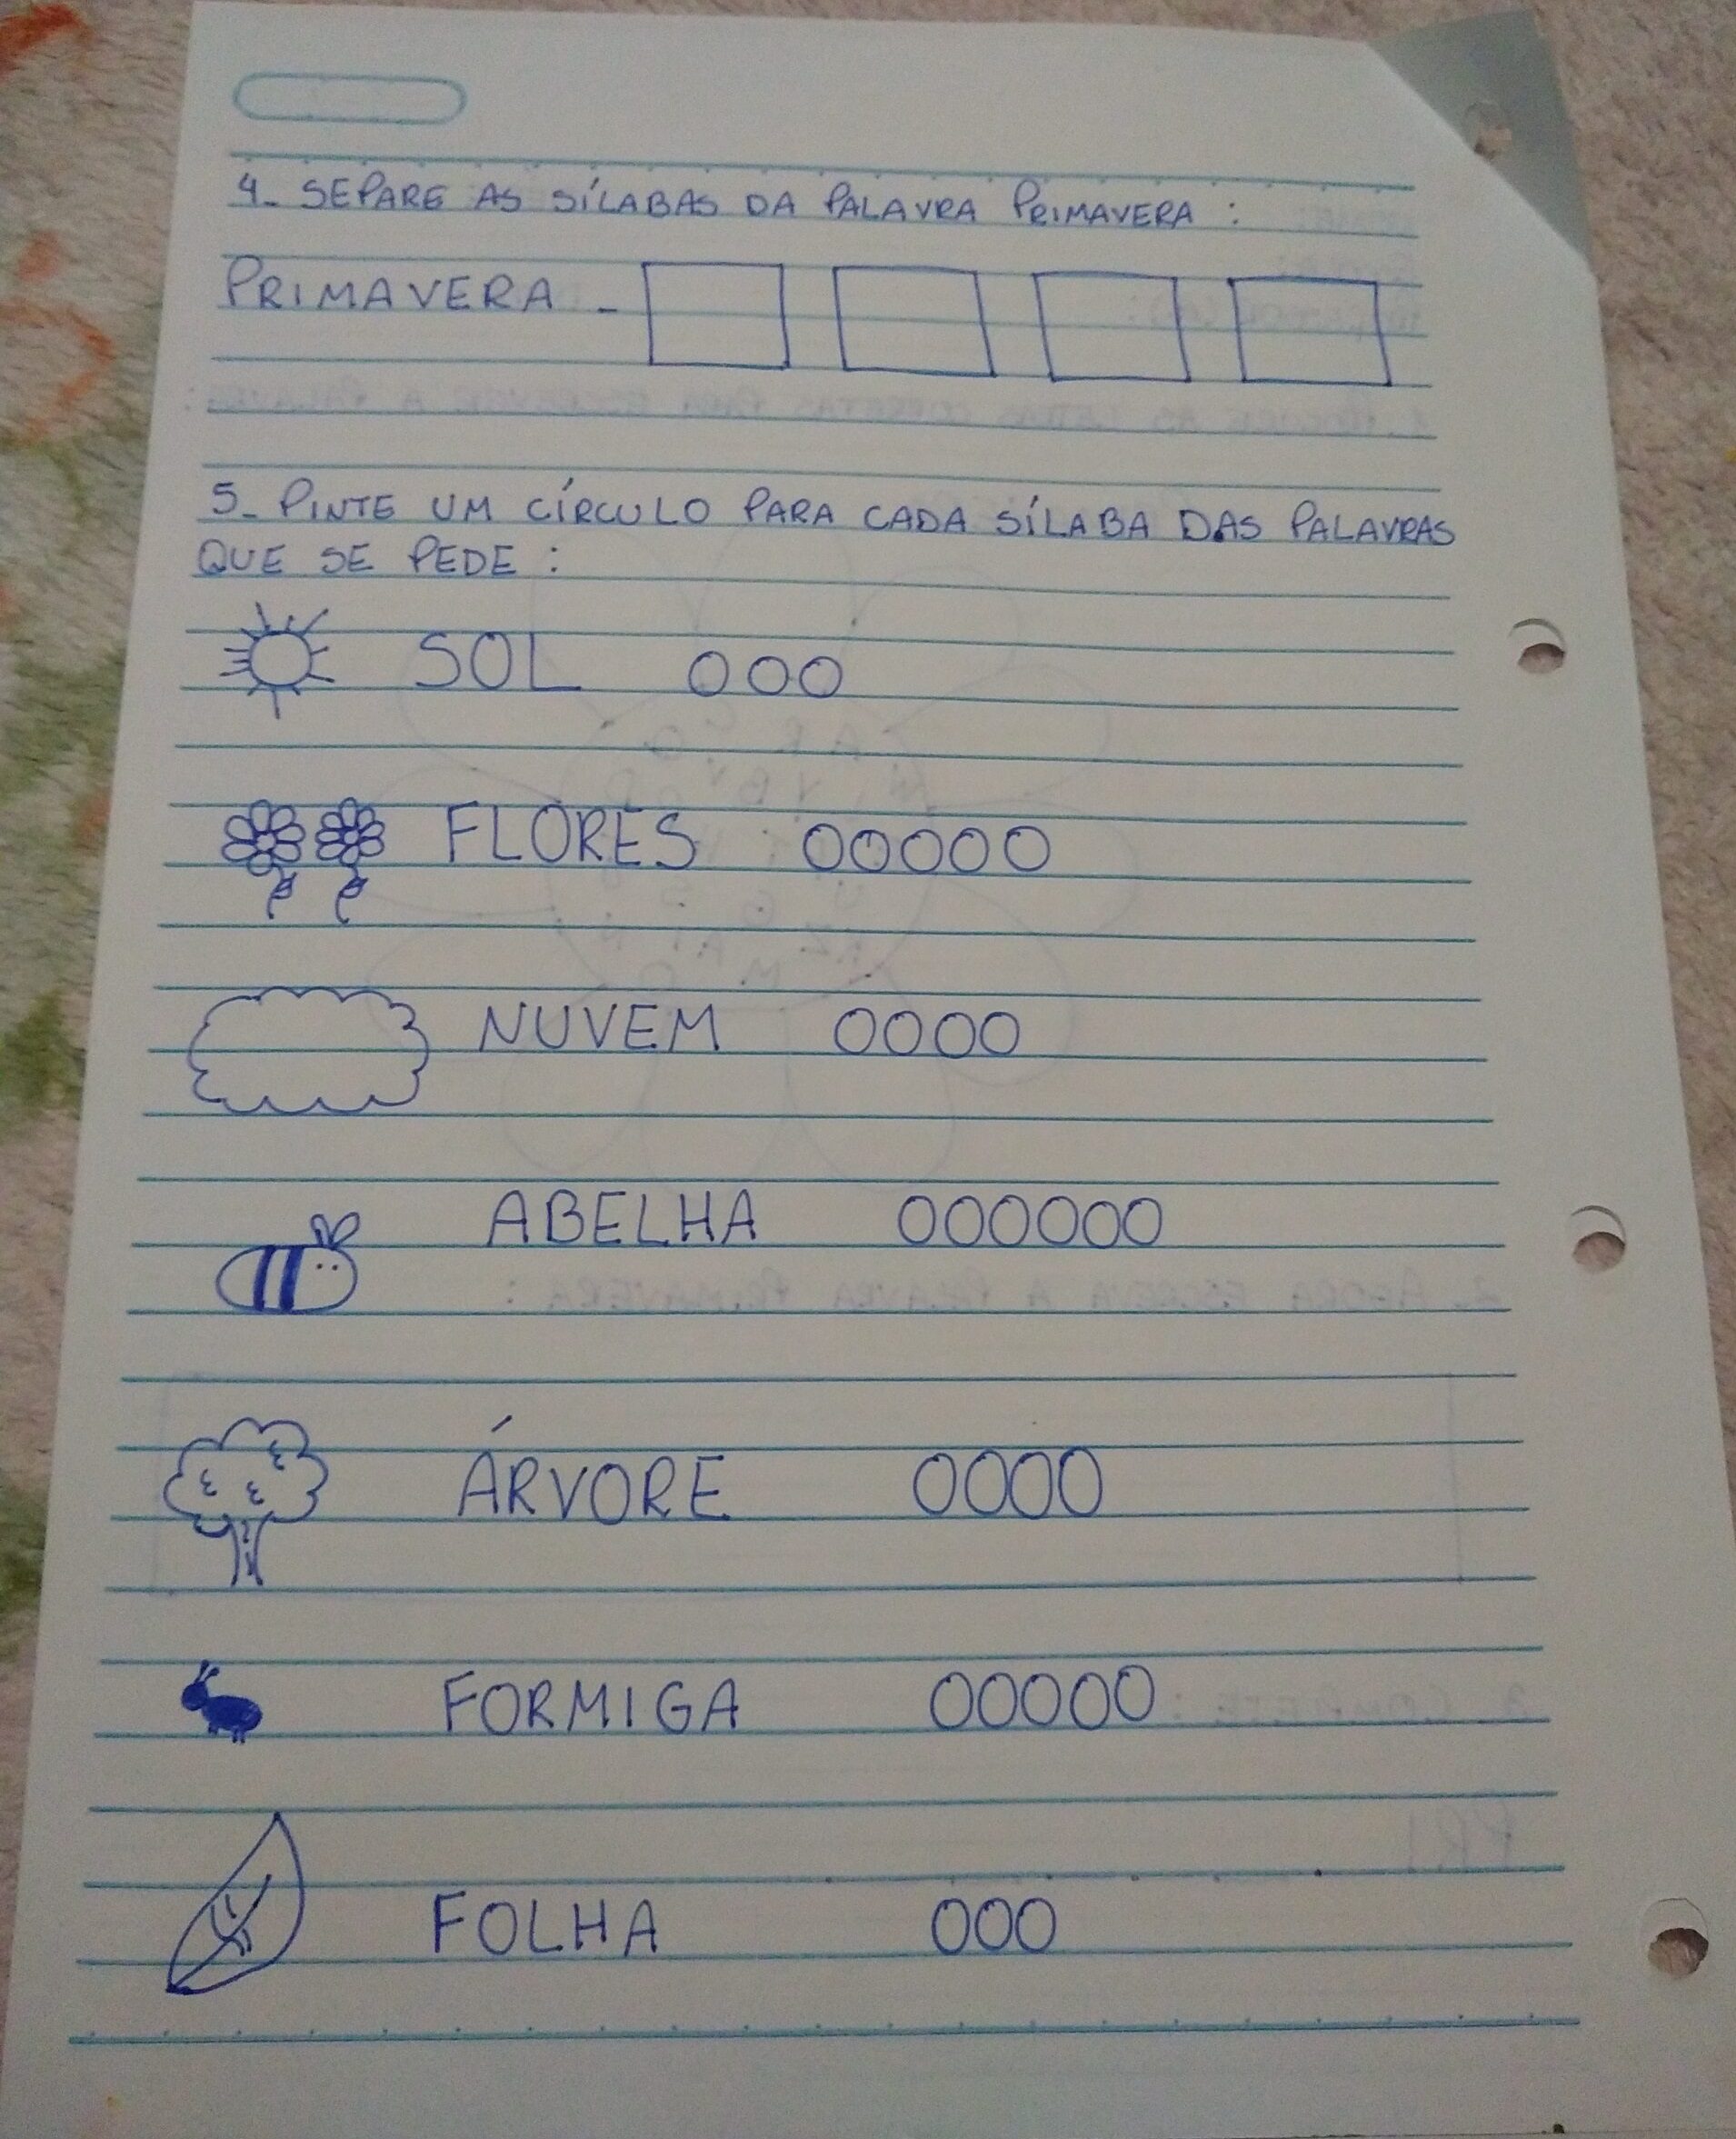 4- SEPARE AS SÍLABAS DA PALAVRA PRIMAVERA :
PRIMAVERA -
5- PINTE UM CÍRCULO PARA CADA SÍLABA DAS PALAVRAS
QUE SE PEDE :
SOL
FLORES
NUVEM
ABELHA
ÁRVORE
FORMIGA
FOLHA